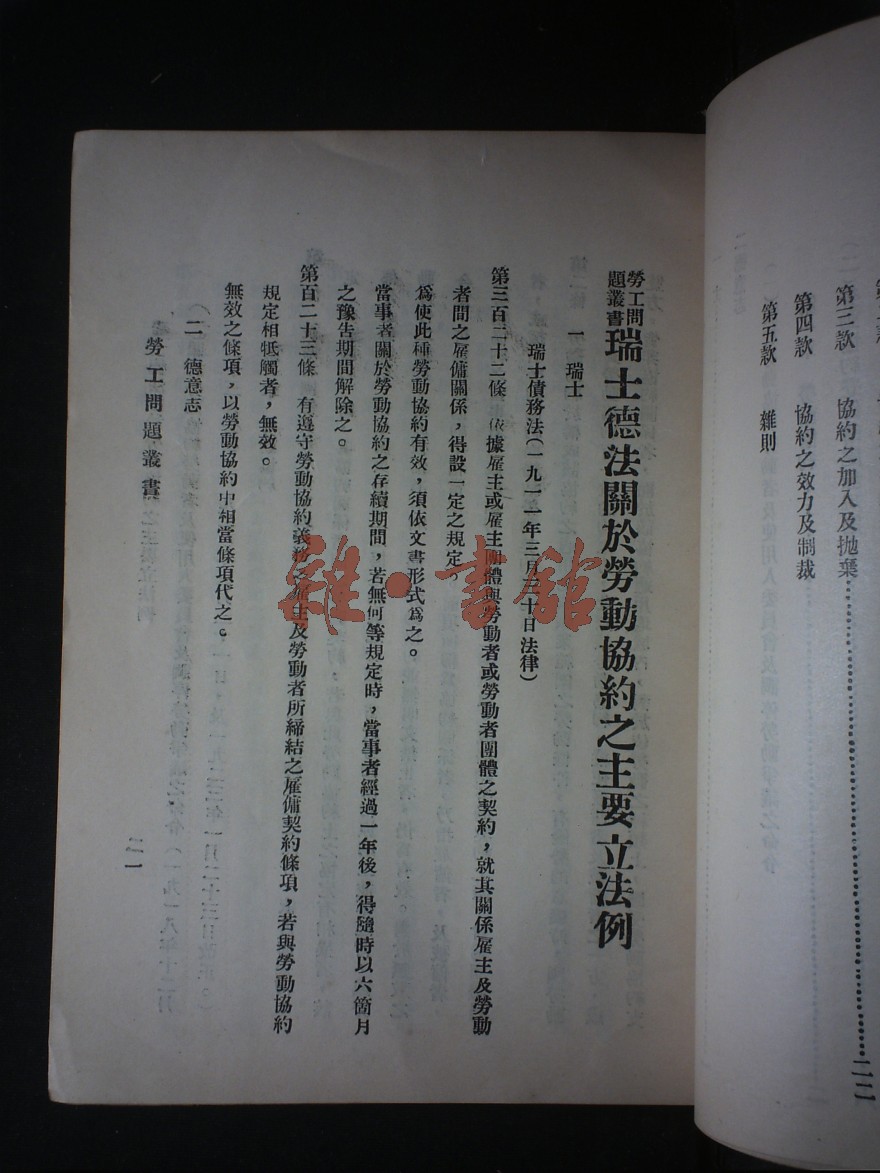 第三款　協約之加入及拋棄
第四款　協約之效力及制裁
第五款　雜則
勞工問題叢書 瑞士德法關於勞動協約之主要立法例
一　瑞士
瑞士債務法(一九一一年三月三十日法律)
第三百二十二條　依據雇主或雇主團體與勞動者或勞動者團體之契約，就其關係雇主及勞動
者間之雇傭關係，得設一定之規定。
為使此種勞動協約有效，須依文書形式為之。
當事者關於勞動協約之存續期間，若無何等規定時，當事者經過一年後，得隨時以六箇月
之豫告期間解除之。
第百二十三條　有遵守勞動協約義務之雇主及勞動者所締結之雇傭契約條項，若與勞動協約
規定相牴觸者，無效。
無效之條項，以勞動協約中相當條項代之。
二　德意志
勞工問題叢書
二一
雜·書館